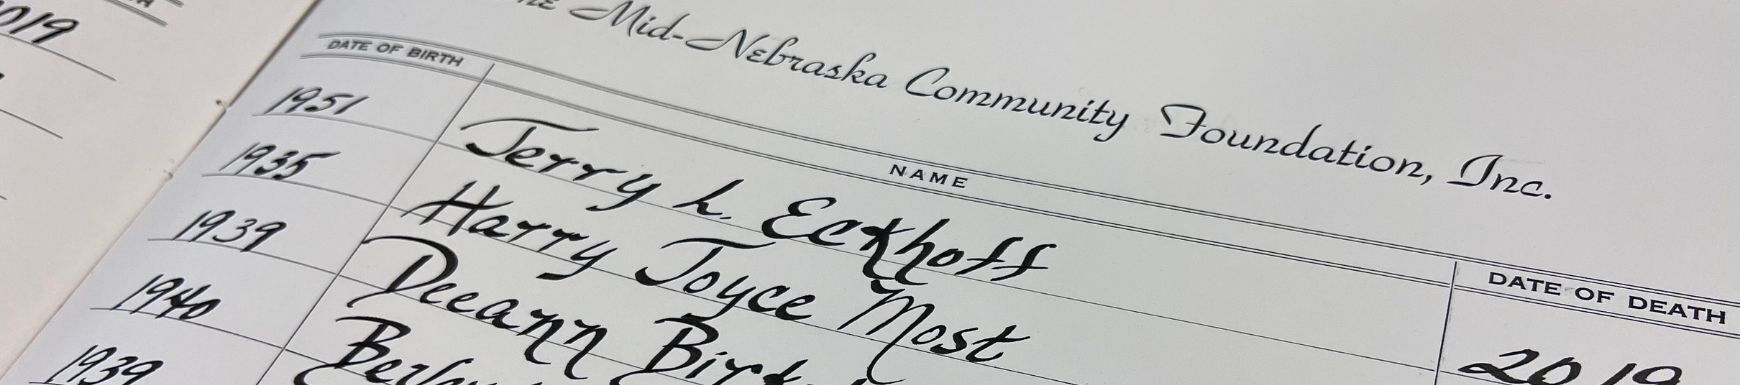 019
Mid-Nebraska Community Foundation, Inc.
DATE OF BIRTH
NAME
DATE OF DEATH
1951 Jerry L. Eckhoff 2019
1935 Harry Joyce Most
1939 Deeann
1940
1939